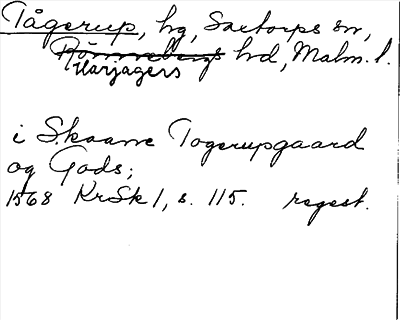 Tågerup, hg, Saxtorps sn,
Rönnebergs hrd, Malm. l.
Harjagers
i Skaane Togerupgaard
og Gods;
1568 KrSk 1, s. 115. regest.